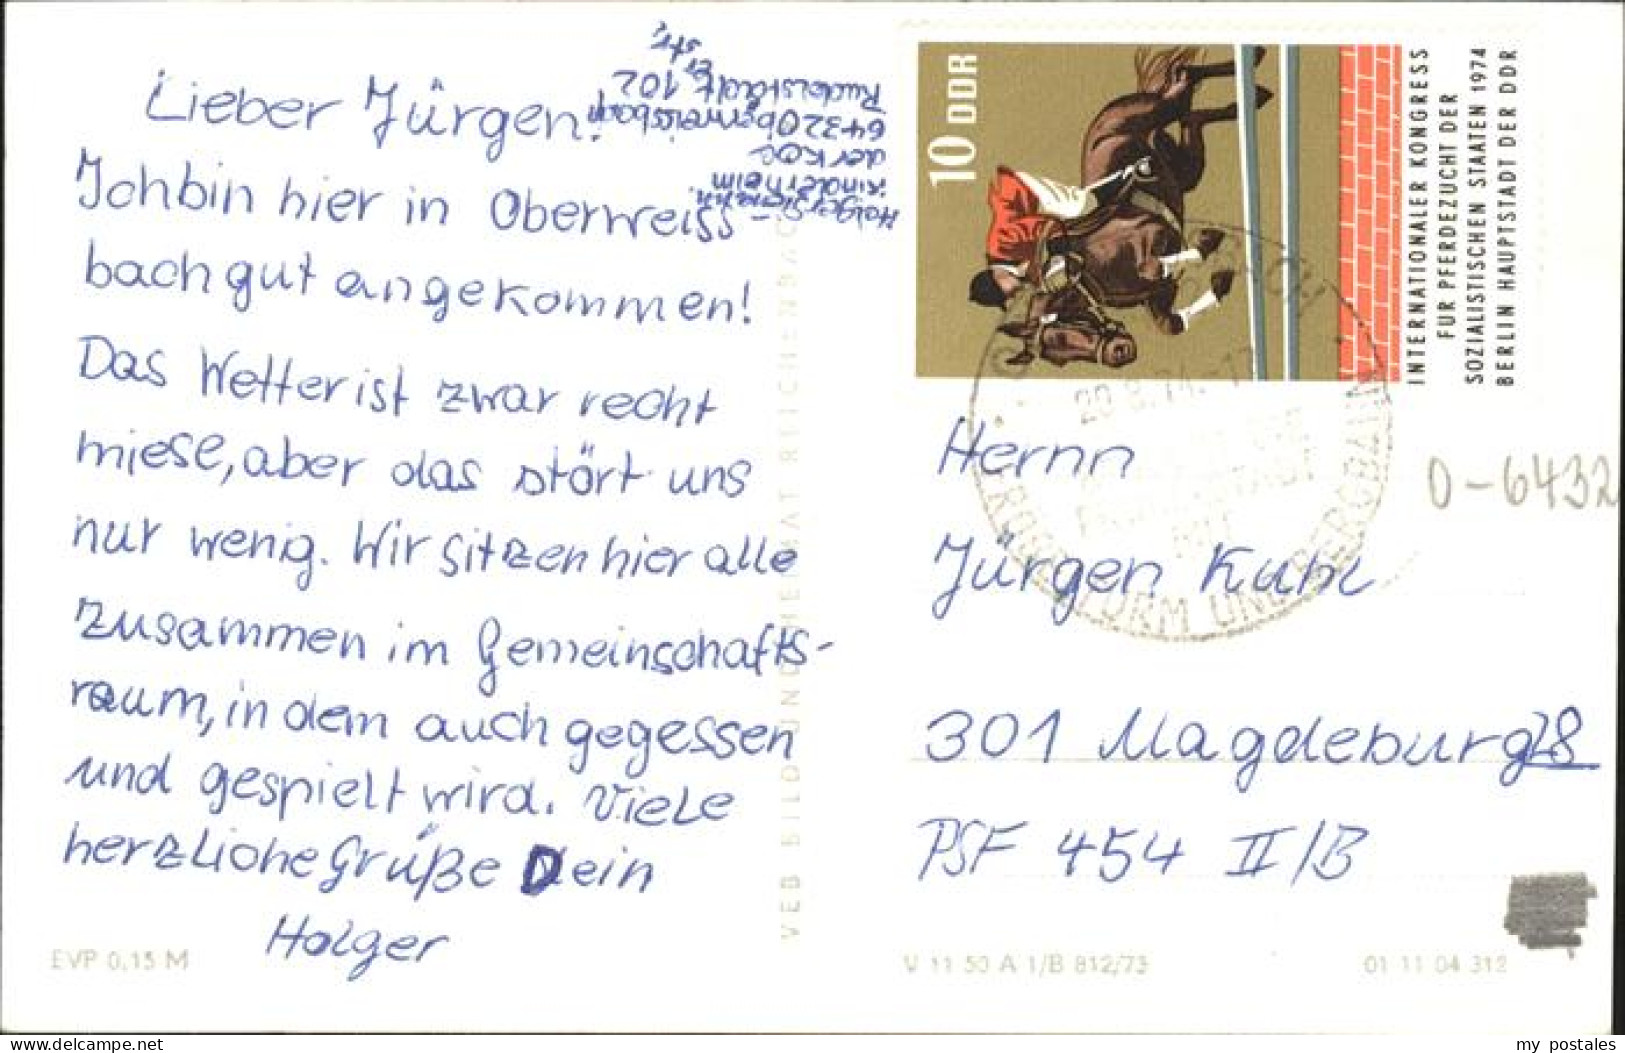 Lieber Jürgen!
Ich bin hier in Oberweiss-
bach gut angekommen!
Das Wetter ist zwar recht
miese, aber das stört uns
nur wenig. Wir sitzen hier alle
zusammen im Gemeinschafts-
raum, in dem auch gegessen
und gespielt wird. Viele
herzliche Grüße Dein
Holger
Holger
Kinderheim
der KOS
6432 Oberweissbach
Rudolstädter
str. 102
EVP 0,15 M
VEB BILD UND HEIMAT REICHENBACH
10 DDR
INTERNATIONALER KONGRESS
FÜR PFERDEZUCHT DER
SOZIALISTISCHEN STAATEN 1974
BERLIN HAUPTSTADT DER DDR
20.8.74.-17
FRÖBELTURM UND BERGBAHN
Herrn
Jürgen Kuhl
301 Magdeburg 28
PSF 454 II/B
D-6432
V 11 50 A 1/B 812/73
01 11 04 312
my postales
www.delcampe.net